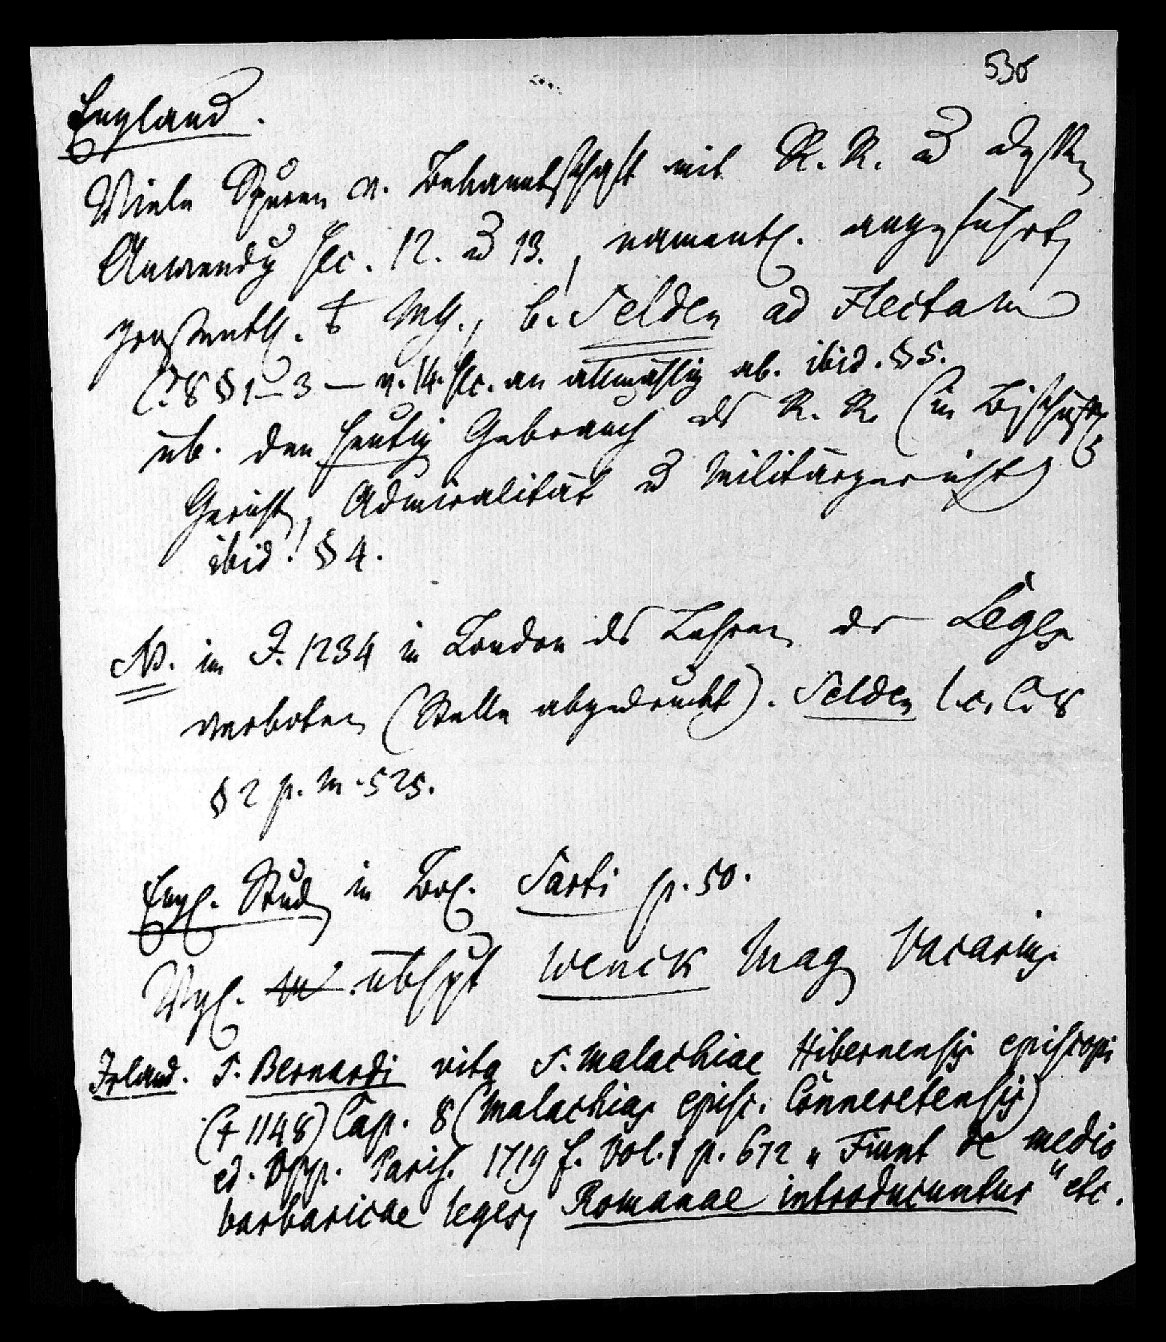 536
England.
Viele Spuren v. Bekanntschaft mit R. R. u dessen
Anwendg sec. 12. u 13., namentl. angeführte
großentheils. MSS., b. Selden ad Fletam
C. 8 § 1–3 — v. 14. sec. an allmählig ab. ibid. § 5.
üb. den heutig Gebrauch des R. R. (in Bischöfl.
Gericht, Admiralität u Militärgericht)
ibid. § 4.
NB. im J. 1234 in London das Lehren der Leges
verboten (Stelle abgedruckt). Selden l. c. C. 8
§ 2 p. m. 525.
Engl. Stud in Bol. Sarti p. 50.
Vgl. überhpt Wenck Mag Vacarius.
Irland. S. Bernardi vita S. Malachiae Hibernensis episcopi
(† 1148) Cap. 8 (Malachias episc. Conneretensis)
ed. Opp. Paris. 1719 f. Vol. 1 p. 672 „Fiunt de medio
barbaricae leges, Romanae introducuntur" etc.